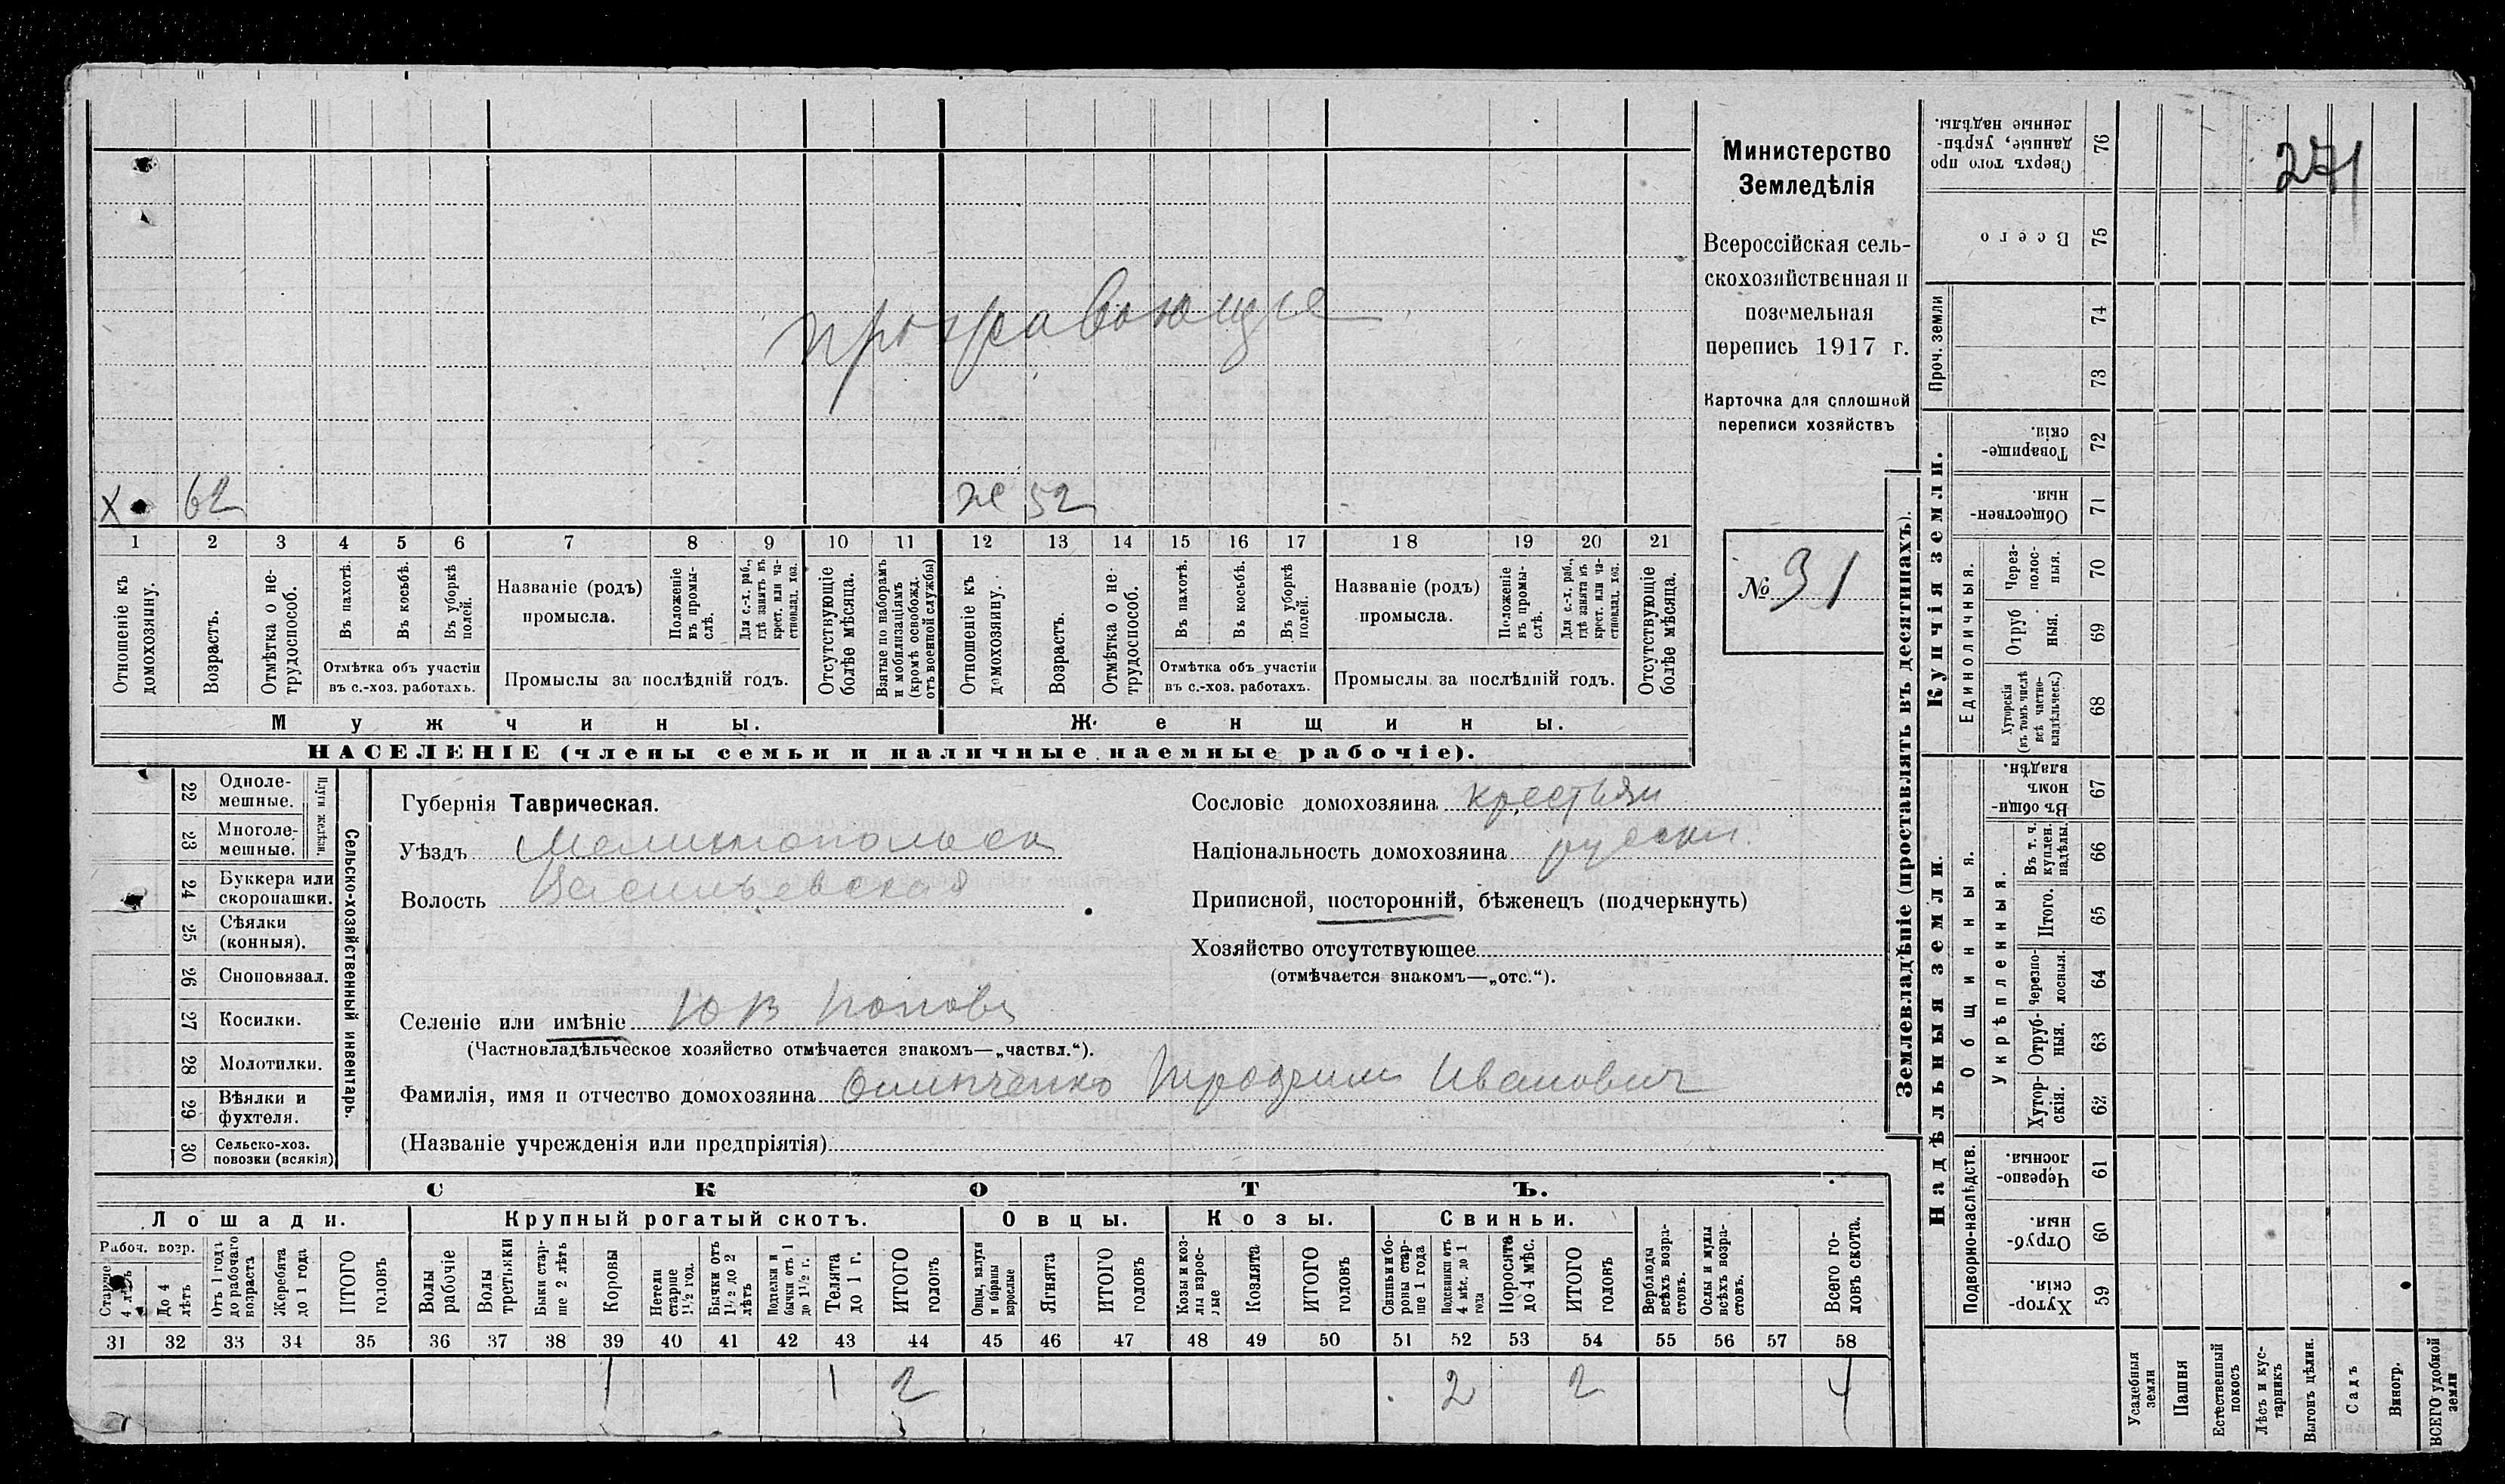 271
Министерство
Земледѣлія
Всероссійская сель-
скохозяйственная и
поземельная
перепись 1917 г.
Карточка для сплошной
переписи хозяйствъ
№ 31
проживающие
х 62 ж 52
1 2 3 4 5 6 7 8 9 10 11 12 13 14 15 16 17 18 19 20 21
Отношеніе къ домохозяину.
Возрастъ.
Отмѣтка о не-трудоспособ.
Въ пахотѣ.
Въ косьбѣ.
Въ уборкѣ полей.
Отмѣтка объ участіи
въ с.-хоз. работахъ.
Названіе (родъ)
промысла.
Положеніе въ промы-слѣ.
Для с.-х. раб., гдѣ занятъ въ крест. или ча-стновлад. хоз.
Промыслы за послѣдній годъ.
Отсутствующіе болѣе мѣсяца.
Взятые по наборамъ и мобилизаціямъ (кромѣ освобожд. отъ военной службы)
Отношеніе къ домохозяину.
Возрастъ.
Отмѣтка о не трудоспособ.
Въ пахотѣ.
Въ косьбѣ.
Въ уборкѣ полей.
Отмѣтка объ участіи
въ с.-хоз. работахъ.
Названіе (родъ)
промысла.
Положеніе въ промы-слѣ.
Для с.-х. раб., гдѣ занята въ крест. или ча-стновлад. хоз.
Промыслы за послѣдній годъ.
Отсутствующіе болѣе мѣсяца.
Мужчины. Женщины.
НАСЕЛЕНІЕ (члены семьи и наличные наемные рабочіе).
Сельско-хозяйственный инвентарь.
Плуги желѣзн.
22 Одноле-мешные.
23 Многоле-мешные.
24 Буккера или скоропашки.
25 Сѣялки (конныя).
26 Сноповязал.
27 Косилки.
28 Молотилки.
29 Вѣялки и фухтеля.
30 Сельско-хоз. повозки (всякія)
Губернія Таврическая.
Уѣздъ Мелитопольск
Волость Васильевская
Селеніе или имѣніе Ю В Попова
(Частновладѣльческое хозяйство отмѣчается знакомъ—„частвл.“).
Фамилія, имя и отчество домохозяина Иванович
(Названіе учрежденія или предпріятія)
Сословіе домохозяина крестьян
Національность домохозяина русски
Приписной, посторонній, бѣженецъ (подчеркнуть)
Хозяйство отсутствующее
(отмѣчается знакомъ—„отс.“).
СКОТЪ.
Лошади. Крупный рогатый скотъ. Овцы. Козы. Свиньи.
Рабоч. возр.
Старше 4 лѣтъ
До 4 лѣтъ
Отъ 1 года до рабочаго возраста
Жеребята до 1 года
ИТОГО головъ
Волы рабочіе
Волы третьяки
Быки стар-ше 2 лѣтъ
Коровы
Нетели старше 1½ год.
Бычки отъ 1½ до 2 лѣтъ
Подтелки и бычки отъ 1 до 1½ г.
Телята до 1 г.
ИТОГО головъ
Овцы, валухи и бараны взрослые
Ягнята
ИТОГО головъ
Козы и коз-лы взрос-лые
Козлята
ИТОГО головъ
Свиньи и бо-ровы стар-ше 1 года
Подсвинки отъ 4 мѣс. до 1 года
Поросята до 4 мѣс.
ИТОГО головъ
Верблюды всѣхъ возра-стовъ.
Ослы и мулы всѣхъ возра-стовъ.
Всего го-ловъ скота.
31 32 33 34 35 36 37 38 39 40 41 42 43 44 45 46 47 48 49 50 51 52 53 54 55 56 57 58
1 1 2 2 2 4
Землевладѣніе (проставлять въ десятинахъ).
Купчія земли.
Надѣльныя земли.
76 Сверхъ того про данные, укрѣп-ленные надѣлы.
75 Всего
Проч. земли
74
73
72 Товарище-скія.
71 Обществен-ныя.
Единоличныя.
70 Через-полос-ныя.
69 Отруб ныя.
68 Хуторскія (въ томъ числѣ всѣ частно-владѣльческ.)
Общинныя.
67 Въ общи-номъ владѣн.
Укрѣпленныя.
66 Въ т. ч. куплен. надѣлы.
65 Итого.
64 Черезпо-лосныя.
63 Отруб-ныя.
62 Хутор-скія.
Подворно-наслѣдств.
61 Черезпо-лосныя.
60 Отруб-ныя.
59 Хутор-скія.
Усадебныя земли
Пашня
Естественный покосъ
Лѣсъ и кус-тарникъ
Выгонъ цѣлин.
Садъ
Виногр.
ВСЕГО удобной земли